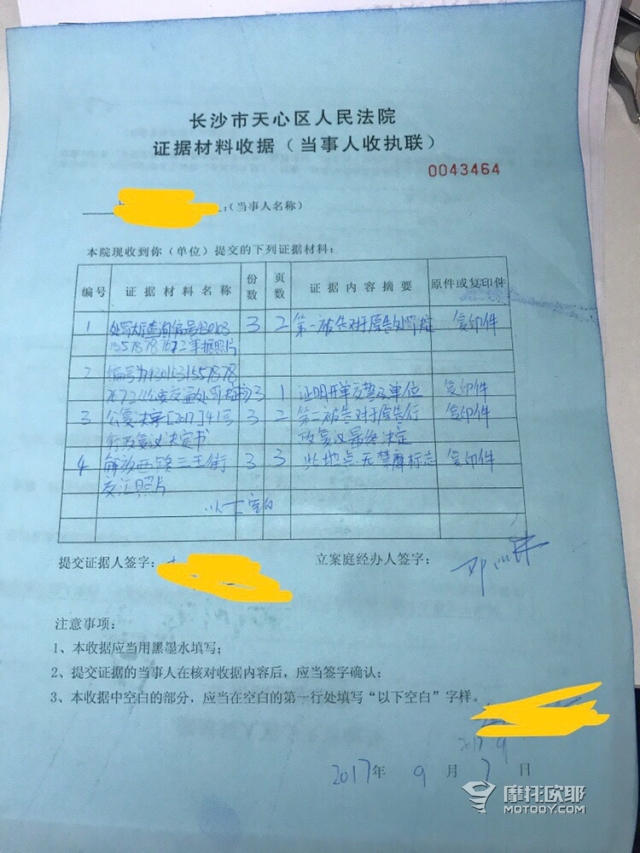 长沙市天心区人民法院
证据材料收据（当事人收执联）
0043464
:(当事人名称)
本院现收到你（单位）提交的下列证据材料：
编号 证据材料名称 份数 页数 证据内容摘要 原件或复印件
1 3 2 第一被告对原告处罚 复印件
照片
2 编号
3 1 证明开单交警及单位 复印件
3 公复决字[2017]41号 3 2 第二被告对原告行 复印件
行政复议决定书 政复议最终决定
4 解放西路三王街 3 3 此地点无禁摩标志 复印件
交汇照片
以下空白
提交证据人签字： 立案庭经办人签字：
注意事项：
1、本收据应当用黑墨水填写；
2、提交证据的当事人在核对收据内容后，应当签字确认；
3、本收据中空白的部分，应当在空白的第一行处填写“以下空白”字样。
2017.9
2017年 9 月 7 日
摩托欧耶
MOTOOY.COM